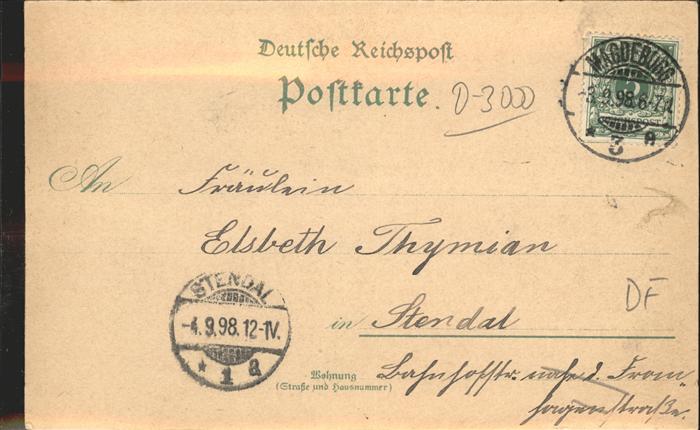 Deutsche Reichspost
Postkarte.
D-3000
MAGDEBURG
-3.9.98.6-7N
* 3 a
An Fräulein
Elsbeth Thymian
STENDAL
-4.9.98.12-1V.
* 1 a
in Stendal
DF
Wohnung
(Straße und Hausnummer)
Bahnhofstr. nahe d. From
hagenstraße.